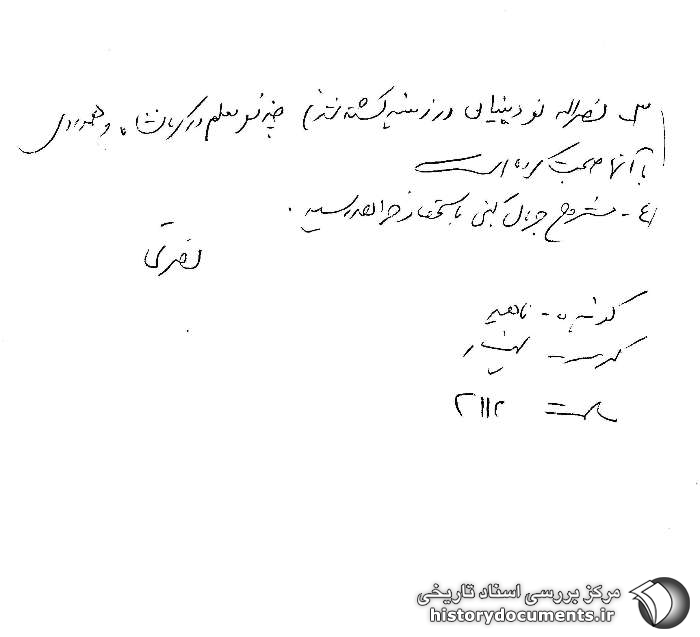 ۳ نصراله نودینیانی در زمینه کشته شدن چند نفر معلم در کرمانشاه و همدردی
با آنها صحبت کرده است
۴ - مشروح جریان کتبی باستحضار خواهد رسید.
نصرتی
گوینده - ناهید
گیرنده -
ساعت ۲۱۱۲
مرکز بررسی اسناد تاریخی
historydocuments.ir